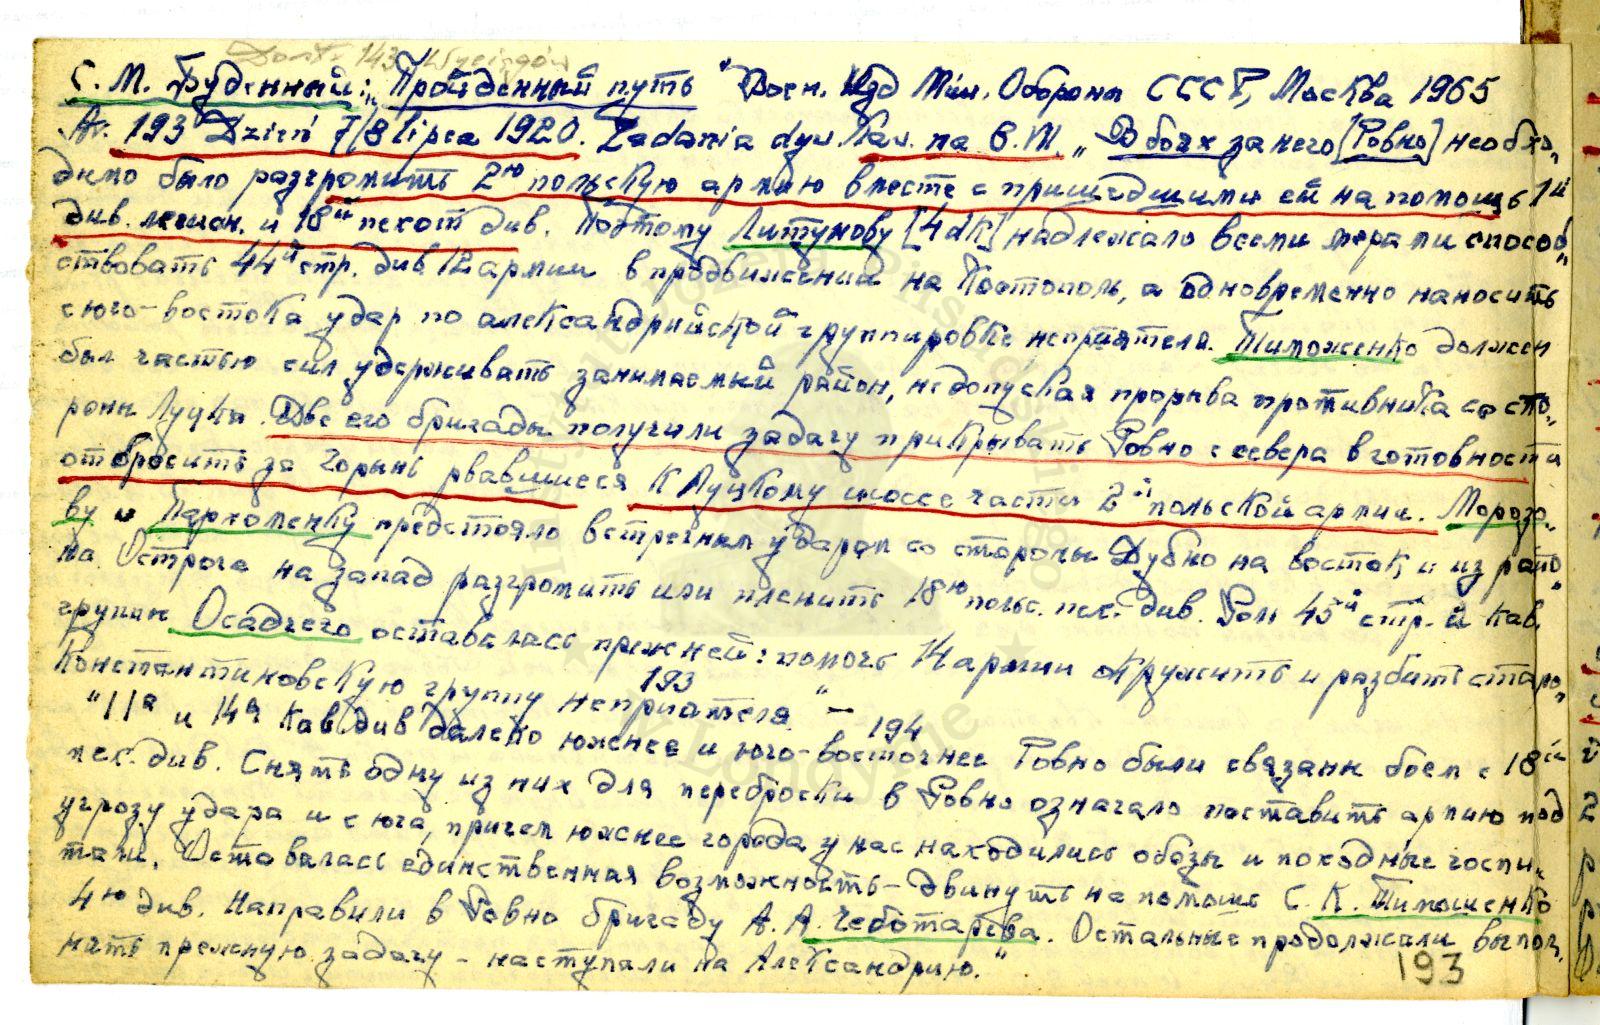 С. М. Буденный: „Пройденный путь" Воен. Изд Мин. Обороны СССР, Москва 1965
193 Dzień 7/8 lipca 1920. Zadania dyw. kaw. na 8.VII „В боях за него [Ровно] необхо„
димо было разгромить 2ю польскую армию вместе с пришедшими ей на помощь 1й
див. легион. и 18й пехот див. Поэтому Литунову [4 dk] надлежало всеми мерами способ„
ствовать 44й стр. див. 12 армии в продвижении на Костополь, а одновременно наносить
с юго-востока удар по александрийской группировке неприятеля. Тиможенко должен
был частью сил удерживать занимаемый район, не допуская прорыва противника со сто„
роны Луцка. Две его бригады получили задачу прикрывать Ровно с севера в готовности
отбросить за Горынь рвавшиеся к Луцкому шоссе части 2й польской армии. Морозо„
ву и Пархоменку предстояло встречным ударом со стороны Дубно на восток и из райо„
на Острога на запад разгромить или пленить 18ю польс. пех. див. Роль 45й стр. и кав.
группы Осадчего оставалась прежней: помочь 14 армии окружить и разбить старо„
константиновскую группу неприятеля" —
193
194
"11я и 14я кав див далеко южнее и юго-восточнее Ровно были связаны боем с 18й
пех. див. Снять одну из них для переброски в Ровно означало поставить армию под
угрозу удара и с юга, причем южнее города у нас находились обозы и походные госпи„
тали. Оставалась единственная возможность – двинуть на помощь С. К. Тимошенко
4ю див. Направили в Ровно бригаду А. А. Чеботарева. Остальные продолжали выпол„
нять прежнюю задачу – наступали на Александрию."
193
Instytut Józefa Piłsudskiego
w Londynie